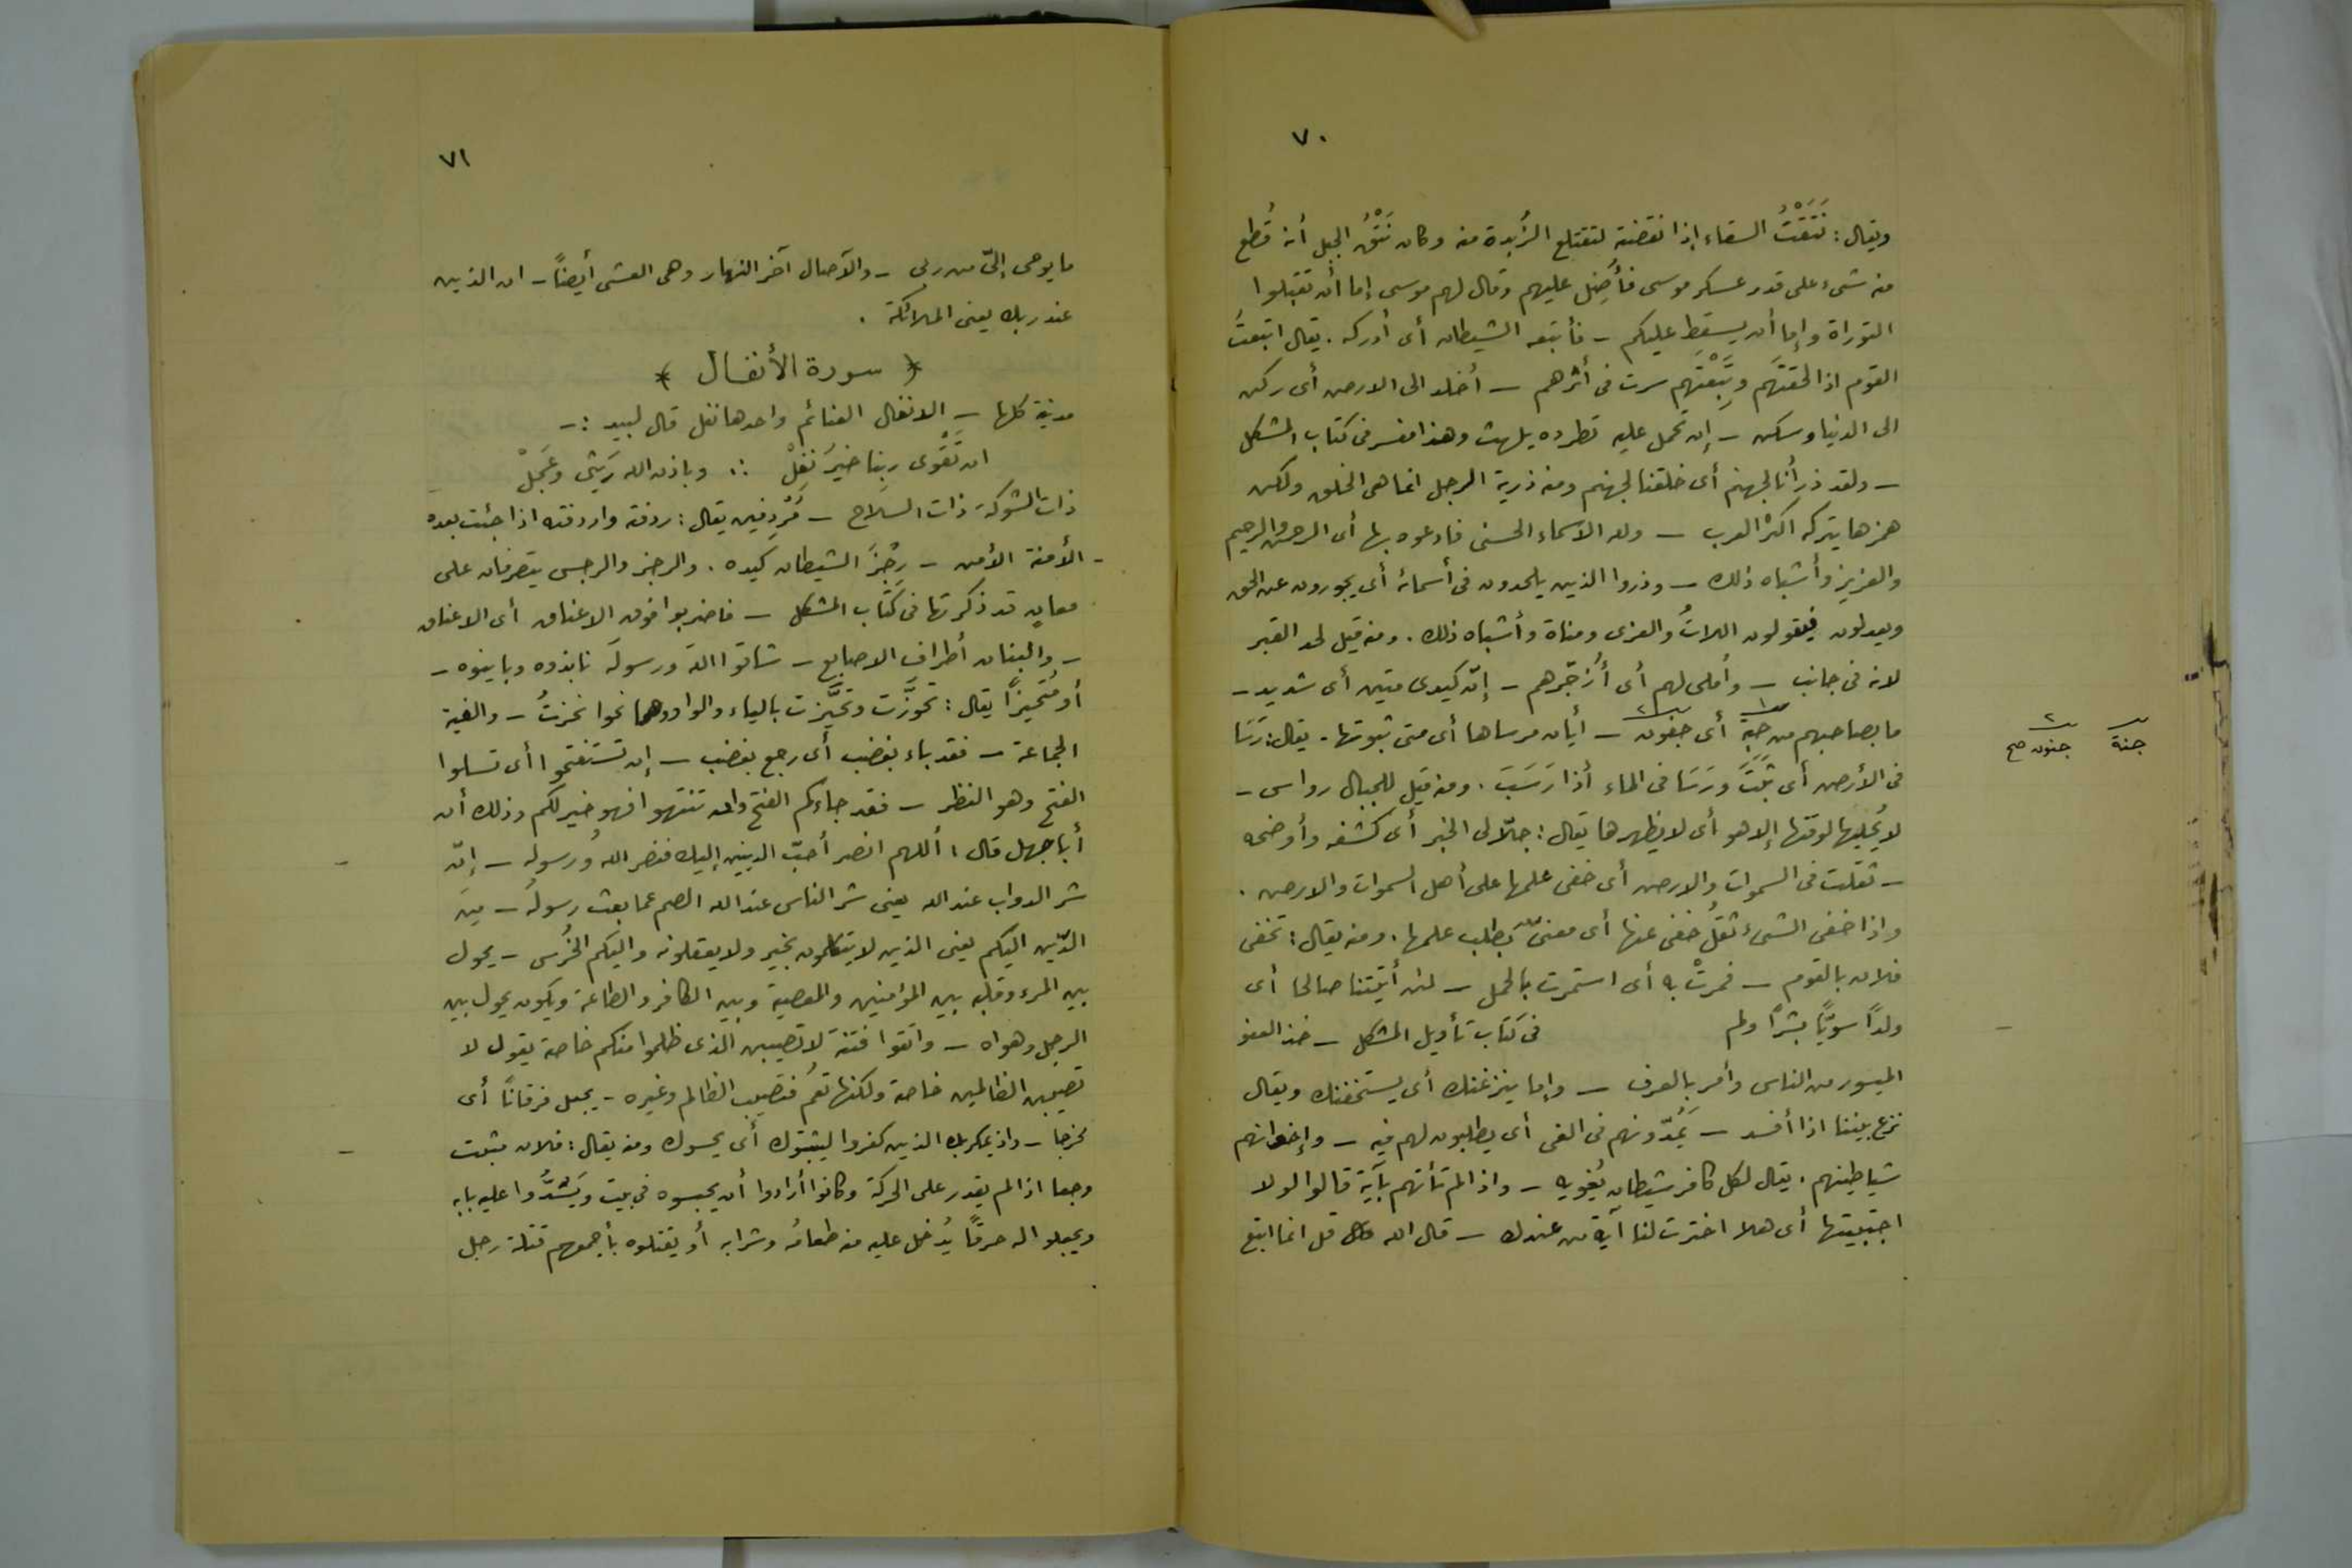 ٧٠
ويقال: نَتَقْتُ السقاء إذا نقضته لتقتلع الزُبدة منه وكان نَتْقُ الجبل أنه قُطع
منه شىء على قدر عسكر موسى فأُضِل عليهم وقال لهم موسى إما أن تقبلوا
التوراة وإما أن يسقط عليكم – فأتبعه الشيطان أى أدركه . يقال اتبعتُ
القوم اذا لحقتَهم وتَبِعْتَهم سرت فى أثرهم – أخلد الى الارض أى ركن
الى الدنيا وسكن – إن تحمل عليه تطرده يلهث وهذا مفسر فى كتاب المشكل
– ولقد ذرأنا لجهنم أى خلقنا لجهنم ومنه ذرية الرجل انما هى الخلق ولكن
همزها يتركه اكثر العرب – ولله الاسماء الحسنى فادعوه بها أى الرحمن والرحيم
والعزيز وأشباه ذلك – وذروا الذين يلحدون فى أسمائه أى يجورون عن الحق
ويعدلون فيقولون اللاتُ والعزى ومناة وأشباه ذلك . ومنه قيل لحد القبر
لانه فى جانب – وأملى لهم أى أؤخّرهم – إنّ كيدى متين أى شديد –
ما بصاحبهم من جبة ١ أى جفون ٢ – أيان مرساها أى متى ثبوتها . يقال: رَسَا
فى الأرض أى ثَبَتَ ورَسَا فى الماء أذا رَسَبَ . ومنه قيل للجبال رواسى –
لا يُجليها لوقتها إلا هو أى لا يظهرها يقال: جلّا لى الخبر أى كشفه وأوضحه
– ثقلت فى السموات والارض أى خفى علمها على أهل السموات والارض .
واذا خفى الشىء ثَقُل خفى عنها أى معنىٌ بطلب علمها . ومنه يقال: تحفى
فلان بالقوم – فمرتْ به أى استمرت بالحمل – لئن أتيتنا صالحا أى
ولدًا سويًّا بشرًا ولم فى كتاب تأويل المشكل – خذ العفو
الميسور من الناس وأمر بالعرف – وإما ينزغنك أى يستخفنك ويقال
نزغ بيننا اذا أفسد – يَمُدّونهم فى الغى أى يطلبون لهم فيه – وإخوانهم
شياطينهم . يقال لكل كافر شيطان يُغويه – واذا لم تأتهم بآية قالوا لولا
اجتبيتها أى هلا اخترت لنا آية من عندك – قال الله قل انما اتبع
١ جنة
٢ جنون صح
٧١
ما يوحى إلىّ من ربى – والآصال آخر النهار وهى العشى أيضًا – ان الذين
عند ربك يعنى الملائكة .
﴿ سورة الأنفال ﴾
مدنية كلها – الانفال الغنائم واحدها نفل قال لبيد :–
ان تَقْوى ربنا خيرَ نَفِلْ ∴ وباذن الله رَيثى وعَجِلْ
ذات الشوكة ذات السلاح – مُرْدِفين يقال: ردفته واردفته اذا جئت بعده
– الأمنة الأمن – رِجْزَ الشيطان كيده . والرجز والرجس يتصرفان على
معانٍ قد ذكرتها فى كتاب المشكل – فاضربوا فوق الاعناق أى الاعناق
– والبنان أطراف الاصابع – شاقوا اللهَ ورسولَه نابذوه وباينوه –
أو مُتحيزًا يقال: تحوَّزت وتحيَّزت بالياء والواو وهما نحوا نحزتُ – والفية
الجماعة – فقد باء بغضب أى رجع بغضب – إن تستفتحوا أى تسلوا
الفتح وهو النظر – فقد جاءكم الفتح وان تنتهوا فهو خير لكم وذلك أن
أبا جهل قال: أللهم انصر أحبّ الدينين إليك فنصر اللهُ ورسوله – إنّ
شر الدواب عند الله يعنى شر الناس عند الله الصم عما بعث رسولُه – مِن
الدّين البكم يعنى الذين لا يتكلمون بخير ولا يعقلونه والبكم الخُرس – يحول
بين المرء وقلبه بين المؤمنين والمعصية وبين الكافر والطاعة ويكون يحول بين
الرجل وهواه – واتقوا فتنة لا تصيبن الذى ظلموا منكم خاصة يقول لا
تصيبن الظالمين خاصة ولكنها تعُم فتصيب الظالم وغيره – يجعل فرقانًا أى
مخرجا – واذ يمكر بك الذين كفروا ليثبتوك أى يحبسوك ومنه يقال: فلان مثبت
وجعا اذا لم يقدر على الحركة وكانوا أرادوا أن يحبسوه فى بيت ويَسُدُّوا عليه بابه
ويجعلوا له خرقًا يُدخل عليه منه طعامُه وشرابه أو يقتلوه بأجمعهم قتلة رجل